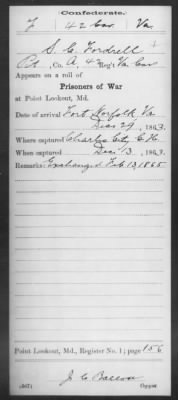 Confederate.
F 42 Cav. Va.
S. C. Fordrell
Pvt, Co. A, 42 Reg't Va. Cav
Appears on a roll of
Prisoners of War
at Point Lookout, Md.
Date of arrival Fort Norfolk Va
Dec 29, 1863.
Where captured Charles City C.H.
When captured Dec 13, 1863.
Remarks: Exchanged Feb 13, 1865
Point Lookout, Md., Register No. 1; page 156
(567) J. C. Copyist.